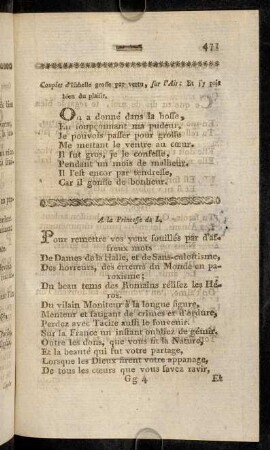 473
Couplet d'Isabelle grosse par vertu, sur l'Air: Et j'y pris
bien du plaisir.
On a donné dans la bosse,
En soupçonnant ma pudeur.
Je pouvois passer pour grosse
Me mettant le ventre au cœur.
Il fut gros, je le confesse,
Pendant un mois de malheur.
Il l'est encor par tendresse,
Car il gonfle de bonheur.
A la Princesse de L.
Pour remettre vos yeux souillés par d'af-
freux mots
De Dames de la Halle, et de Sans-culottisme,
Des horreurs, des erreurs du Monde en pa-
roxisme;
Du beau tems des Romains relisez les Hé-
ros.
Du vilain Moniteur à la longue figure,
Menteur et fatigant de crimes et d'ordure,
Perdez avec Tacite aussi le souvenir.
Sur la France un instant oubliez de gémir.
Outre les dons, que vous fit la Nature,
Et la beauté qui fut votre partage,
Lorsque les Dieux firent votre appanage,
De tous les cœurs que vous savez ravir,
Gg 4
Et